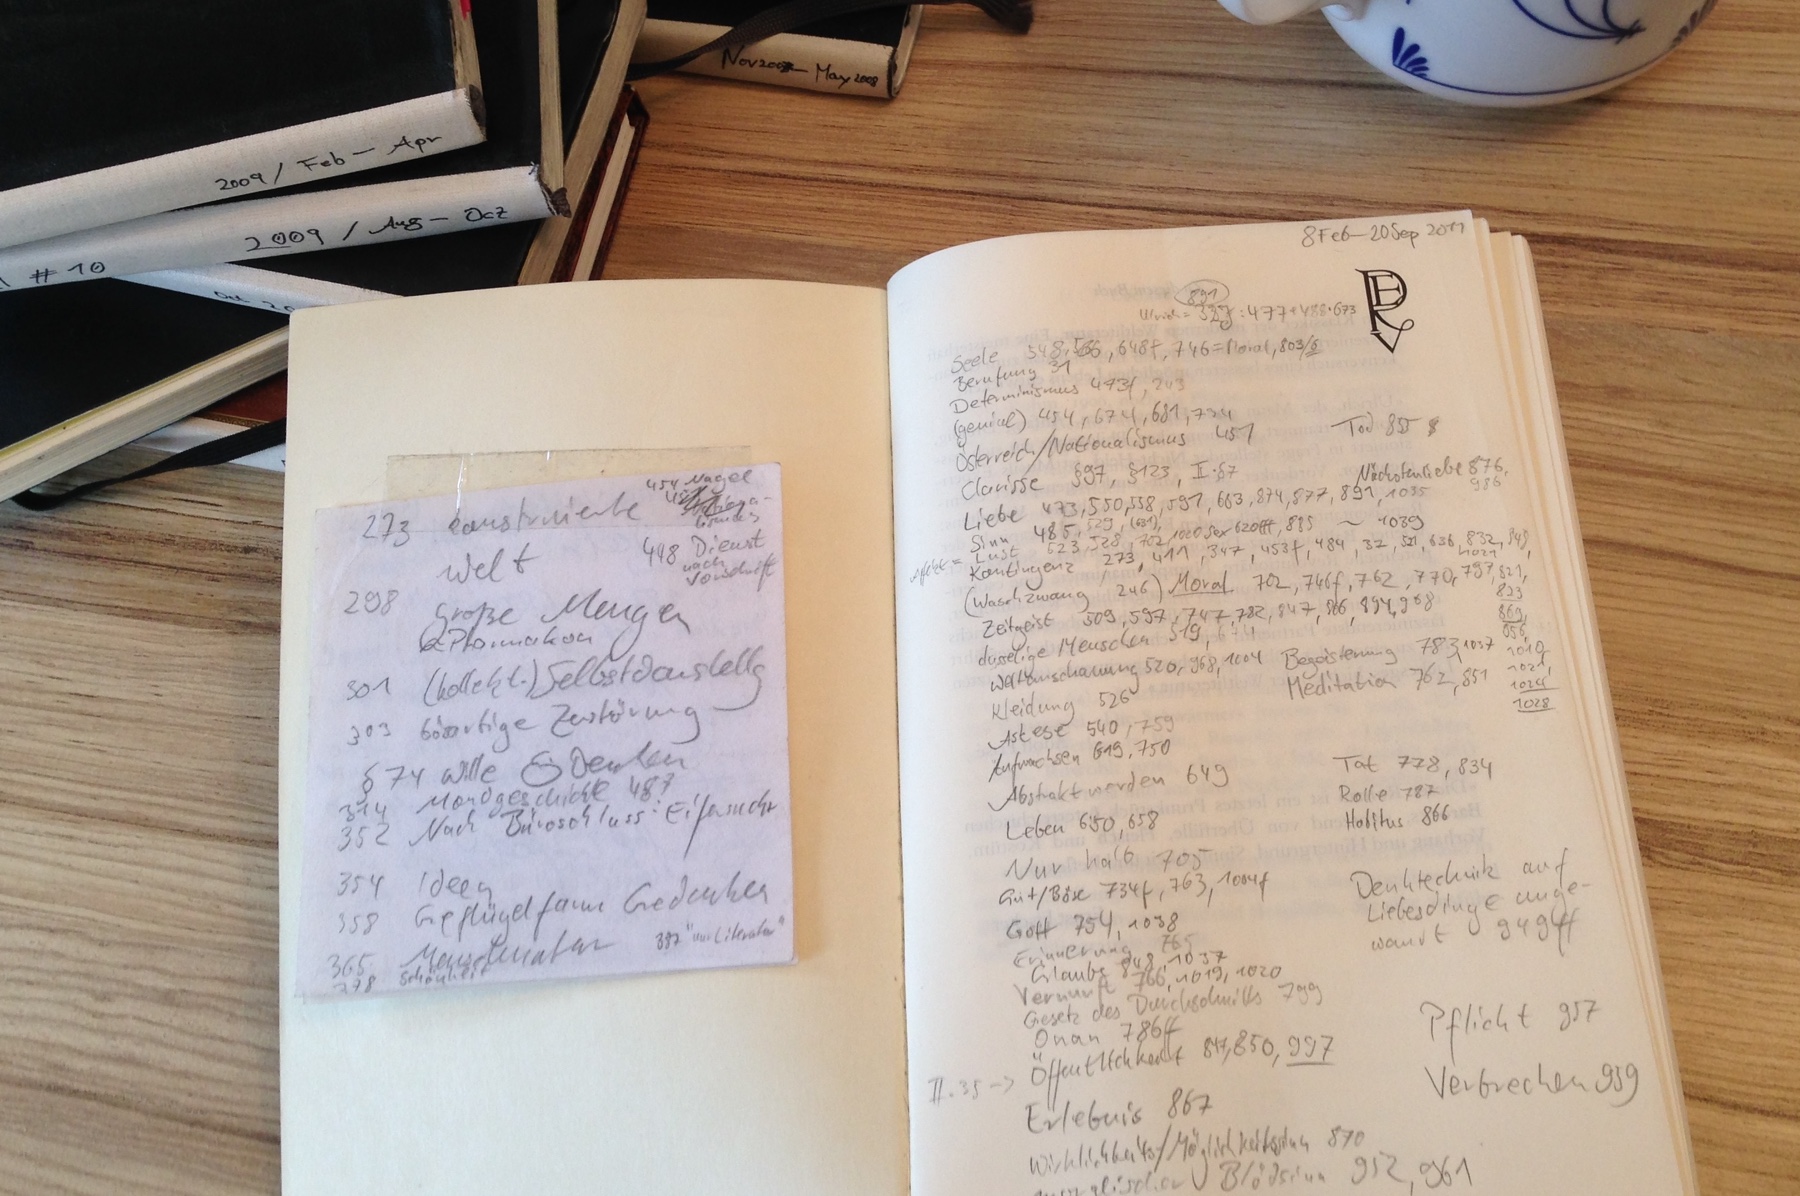 Nov 2007 – May 2008
2009 / Feb – Apr
2009 / Aug – Oct
# 10
Oct
454 Nagel
273 konstruierte
Welt
448 Dienst
nach
Vorschrift
298 große Mengen
301 (kollekt.) Selbstdarstellg
303 bösartige Zerstörung
§ 74 Wille Denken
314 Mordgeschichte 487
352 Nach Büroschluss: Eifersucht
354 Ideen
358 Geflügelfarm Gedanken
365
387 "nur Literatur"
378 Schönheit
8 Feb – 20 Sep 2011
891
Ulrich = : 477 + 488 · 673
Seele 548, 566, 648f, 746 = Moral, 803/6
Berufung 31
Determinismus 473f, 243
(genial) 454, 674, 681, 734
Österreich/Nationalismus 451
Tod 855
Clarisse §97, §123, II·§7
Nächstenliebe 876,
986
Liebe 473, 550, 558, 591, 663, 874, 877, 891, 1035
Sinn 485, 529, (631), 885 ~ 1039
Lust 523, 528, 702, 1020 Sex 620ff,
Kontingenz 273, 411, 347, 453f, 484, 32, 521, 636, 832, 849,
1021
(Waschzwang 246) Moral 702, 746f, 762, 770, 797, 821,
823
Zeitgeist 509, 597, 747, 782, 847, 866, 894, 968
869,
dusselige Menschen 519, 674
956,
Weltanschauung 520, 968, 1004
Begeisterung 783, 1037
1010,
1021,
Kleidung 526
Meditation 762, 851
1024
1028
Askese 540, 759
Aufwachsen 619, 750
Abstrakt werden 649
Tat 778, 834
Leben 650, 658
Rolle 787
Habitus 866
Nur halb 705
Gut/Böse 734f, 763, 1004f
Denktechnik auf
Liebesdinge ange-
wandt 949ff
Gott 754, 1038
Erinnerung 765
Glaube 848, 1037
Vernunft 766, 1019, 1020
Gesetz des Durchschnitts 799
Onan 786ff
Pflicht 957
Öffentlichkeit 847, 850, 997
II.35 →
Verbrechen 959
Erlebnis 867
Wirklichkeits/Möglichkeitssinn 870
moralischer Blödsinn 952, 961